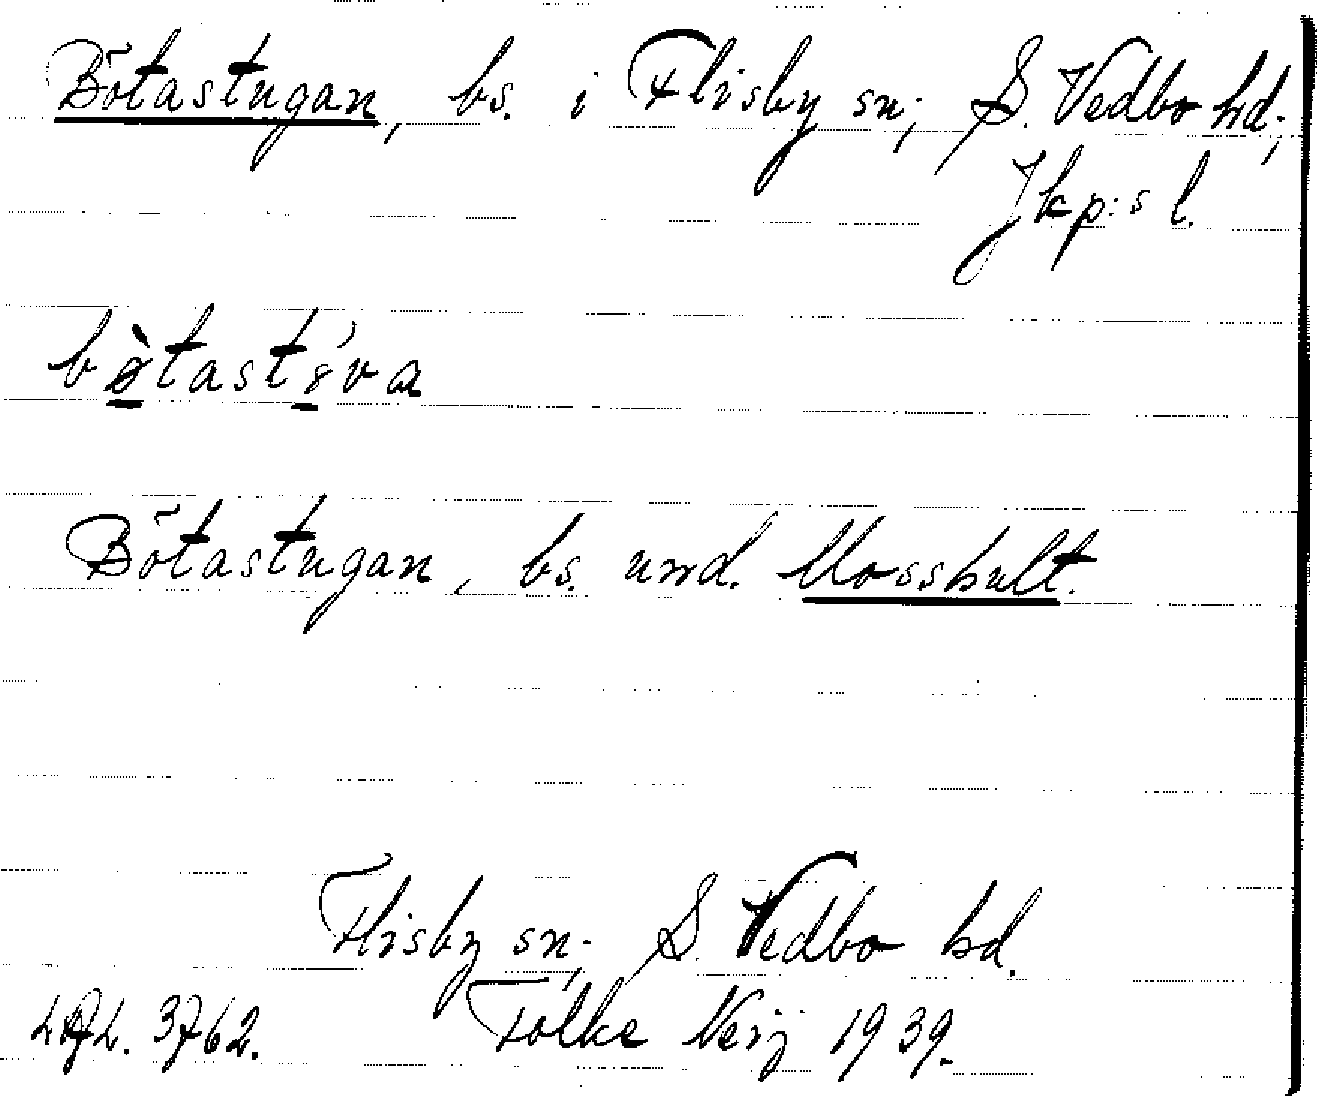 Bötastugan, bs. i Flisby sn; S. Vedbo hd;
Jkp:s l.
bö̀tastö́va
Bötastugan, bs. und. Mosshult.
Flisby sn; S. Vedbo hd.
3762. Folke Neij 1939.